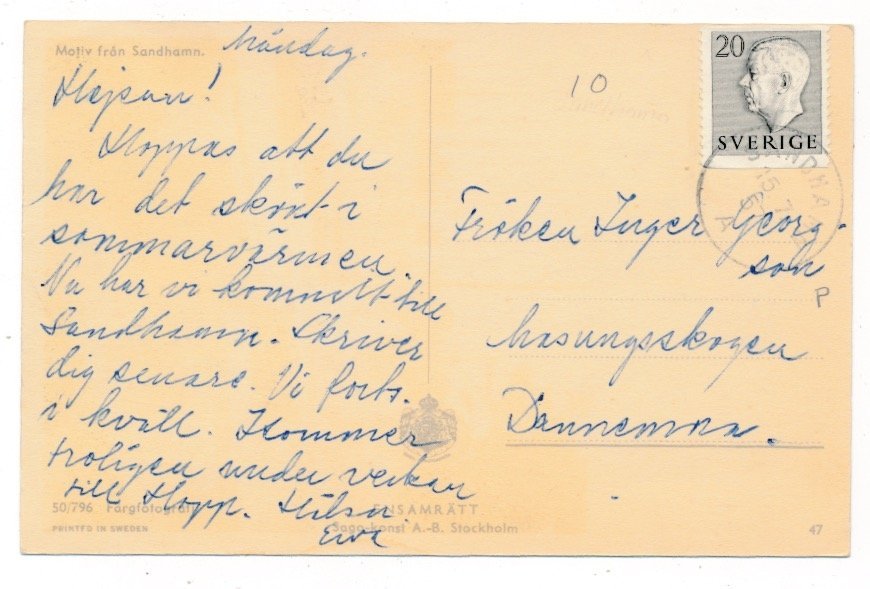 Motiv från Sandhamn.
Måndag.
Hejsan!
Hoppas att du
har det skönt i
sommarvärmen.
Nu har vi kommit till
Sandhamn. Skriver
dig senare. Vi forts.
i kväll. Kommer
troligen under veckan
till Hopp. Hälsn
Ewa
50/796 Färgfotografi
PRINTED IN SWEDEN
ENSAMRÄTT
Sago-konst A.-B. Stockholm
47
10
20
SVERIGE
SANDHAMN
15 7
Fröken Inger Georg-
son
P
Masungskogen
Dannemora.